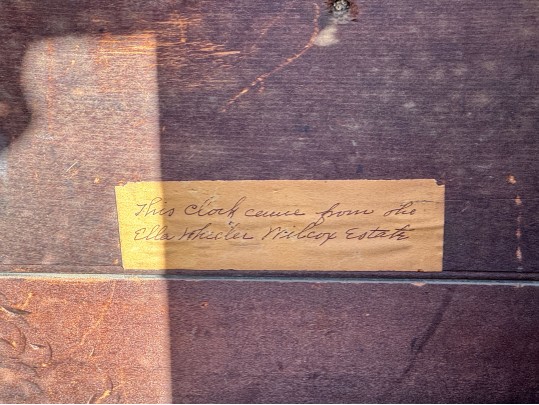 This clock came from the
Ella Wheeler Wilcox Estate